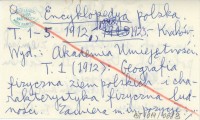 Encyklopedya polska.
T. 1-5 1912 Kraków
Wyd.: Akademia Umiejętności
T. 1 (1912): Geografia
fizyczna ziem polskich i cha-
rakterystyka fizyczna lud-
ności. Zawiera m.